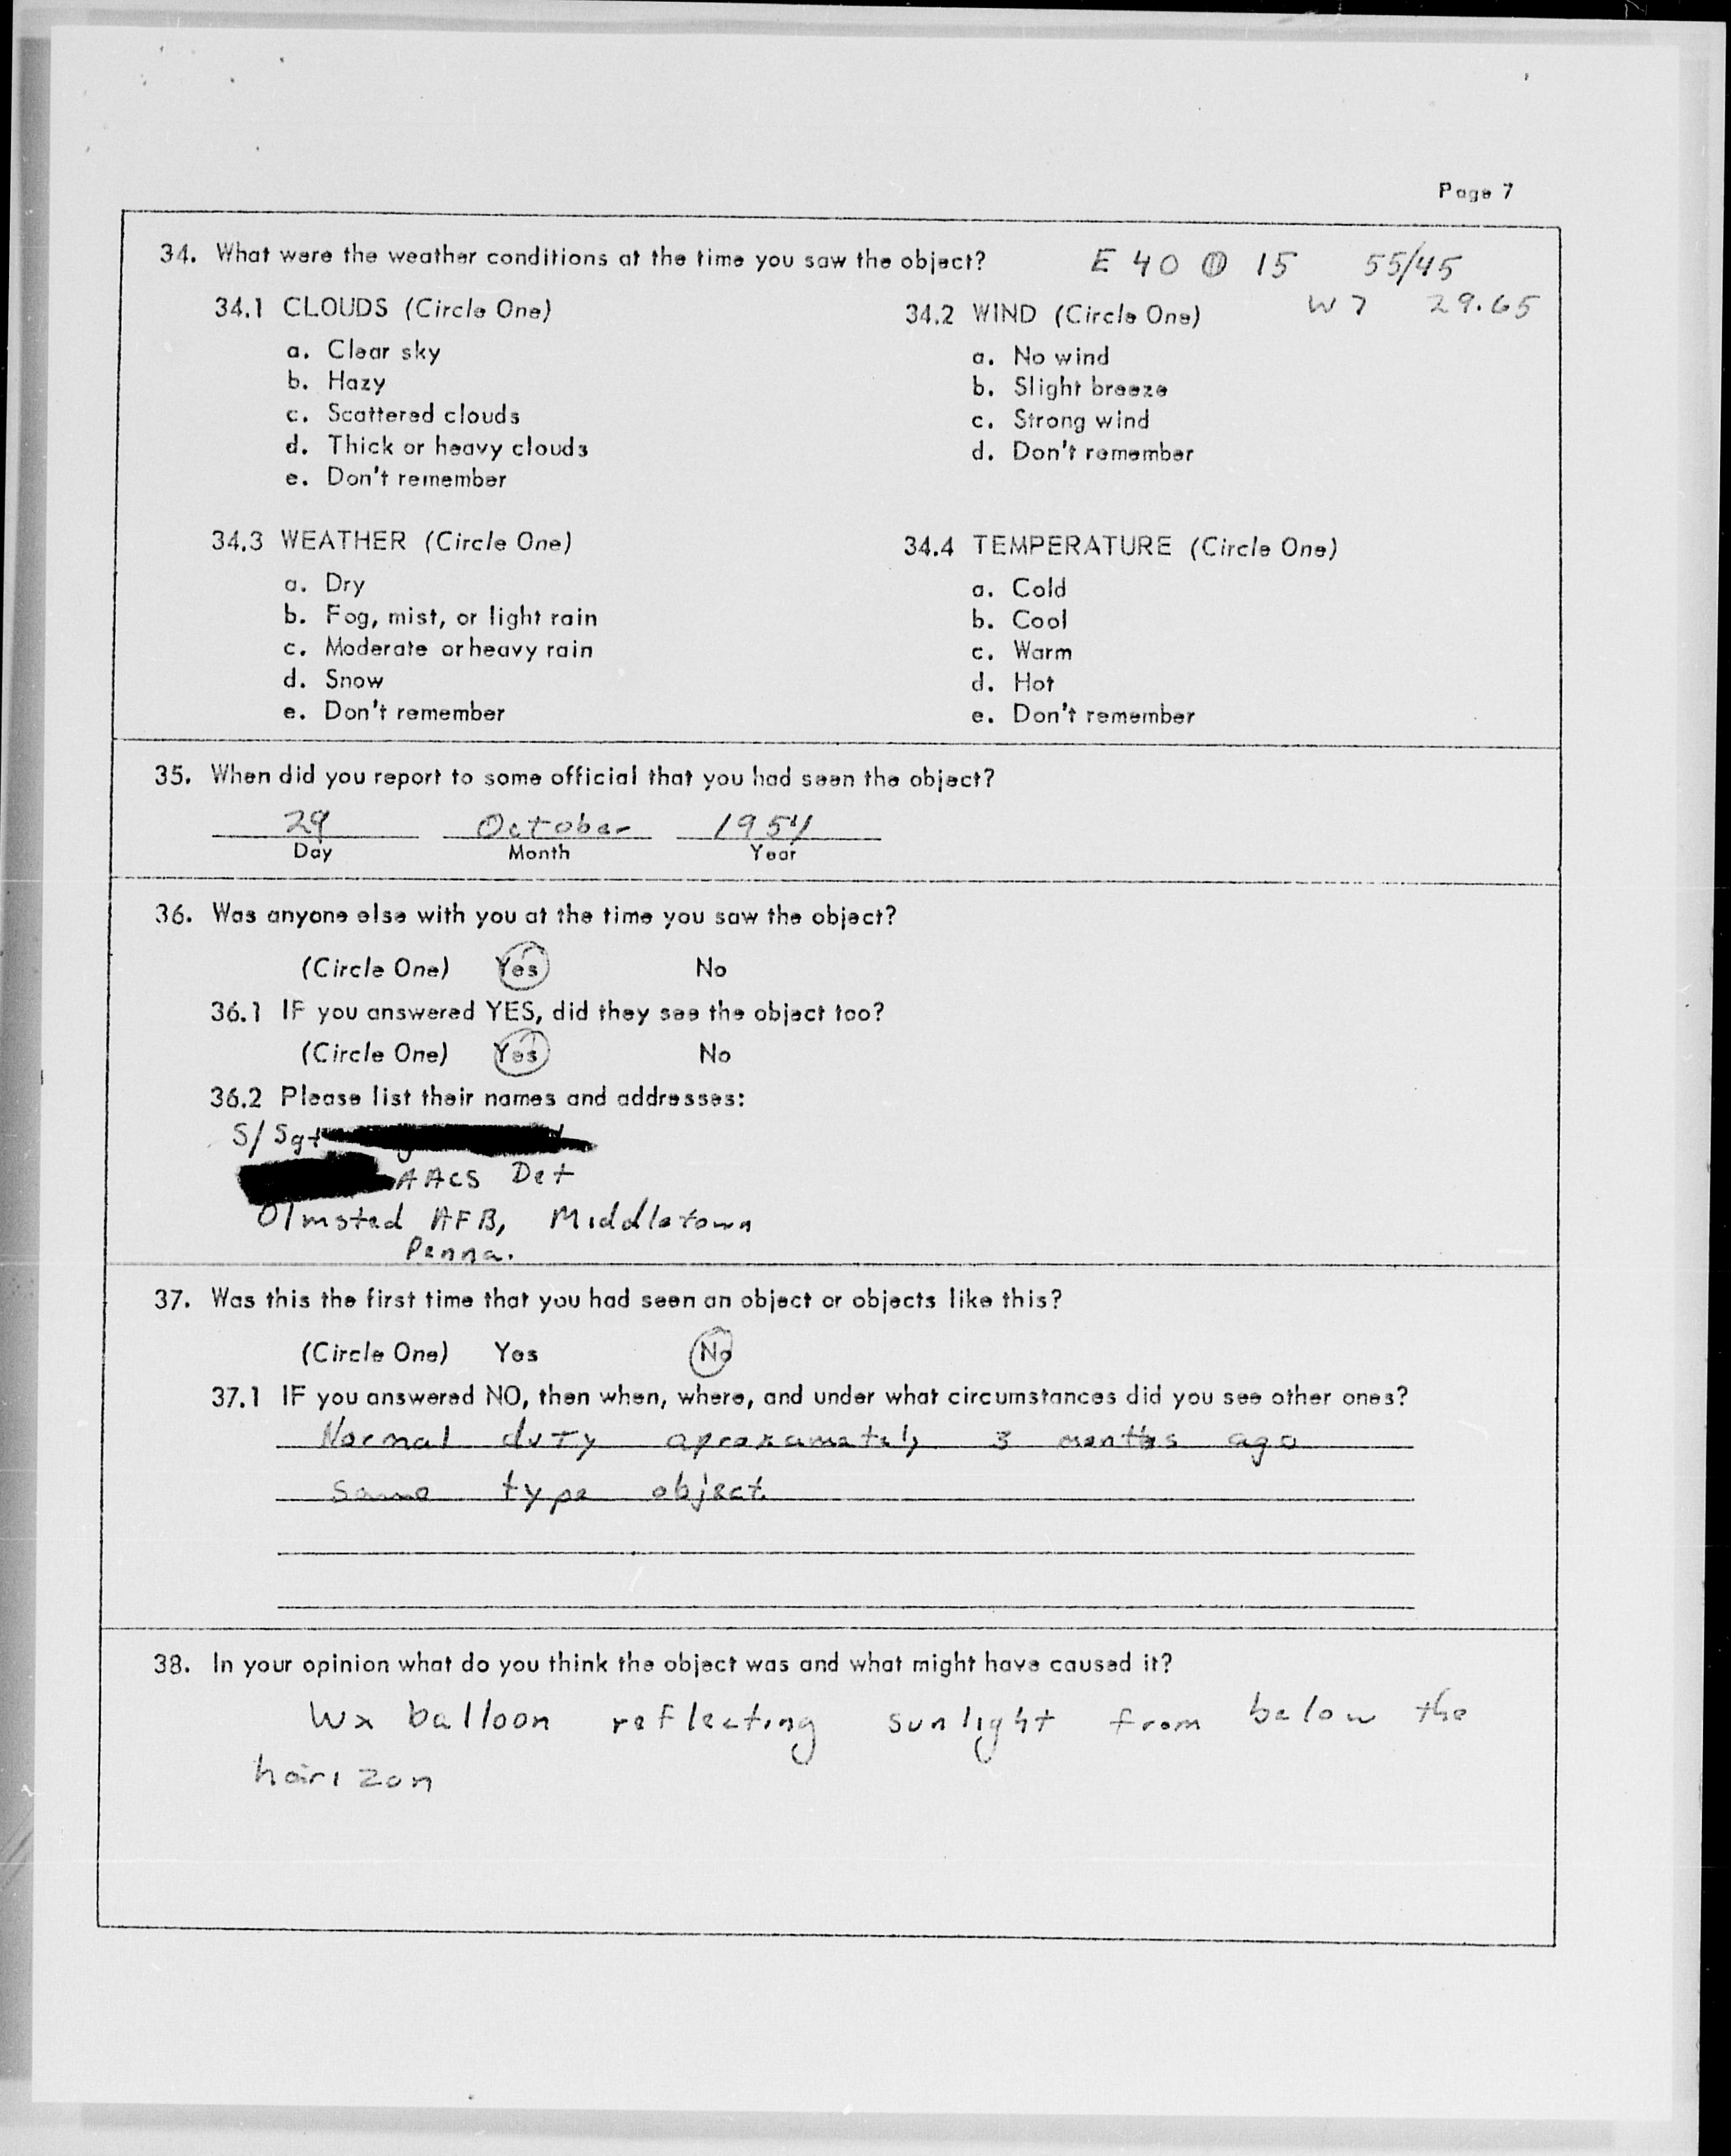 Page 7
34. What were the weather conditions at the time you saw the object? E 40 ⦶ 15 55/45
W 7 29.65
34.1 CLOUDS (Circle One)
a. Clear sky
b. Hazy
c. Scattered clouds
d. Thick or heavy clouds
e. Don't remember
34.2 WIND (Circle One)
a. No wind
b. Slight breeze
c. Strong wind
d. Don't remember
34.3 WEATHER (Circle One)
a. Dry
b. Fog, mist, or light rain
c. Moderate or heavy rain
d. Snow
e. Don't remember
34.4 TEMPERATURE (Circle One)
a. Cold
b. Cool
c. Warm
d. Hot
e. Don't remember
35. When did you report to some official that you had seen the object?
29 October 1954
Day Month Year
36. Was anyone else with you at the time you saw the object?
(Circle One) Yes No
36.1 IF you answered YES, did they see the object too?
(Circle One) Yes No
36.2 Please list their names and addresses:
S/Sgt
AACS Det
Olmsted AFB, Middletown
Penna.
37. Was this the first time that you had seen an object or objects like this?
(Circle One) Yes No
37.1 IF you answered NO, then when, where, and under what circumstances did you see other ones?
Normal duty aproxamately 3 months ago
same type object.
38. In your opinion what do you think the object was and what might have caused it?
Wx balloon reflecting sunlight from below the
horizon